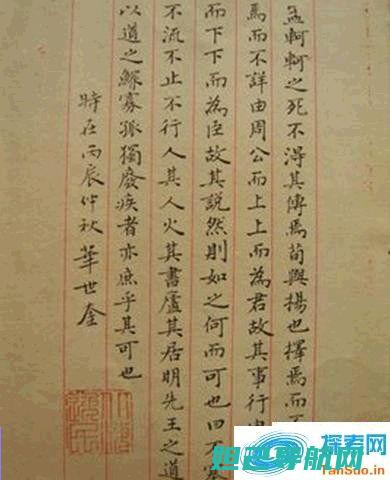 孟軻軻之死不得其傳焉荀與揚也擇焉而不
焉而不詳由周公而上上而為君故其事行由
而下下而為臣故其説然則如之何而可也曰不塞
不流不止不行人其人火其書廬其居明先王之道
以道之鰥寡孤獨廢疾者亦庶乎其可也
時在丙辰仲秋華世奎
TanSuo.in